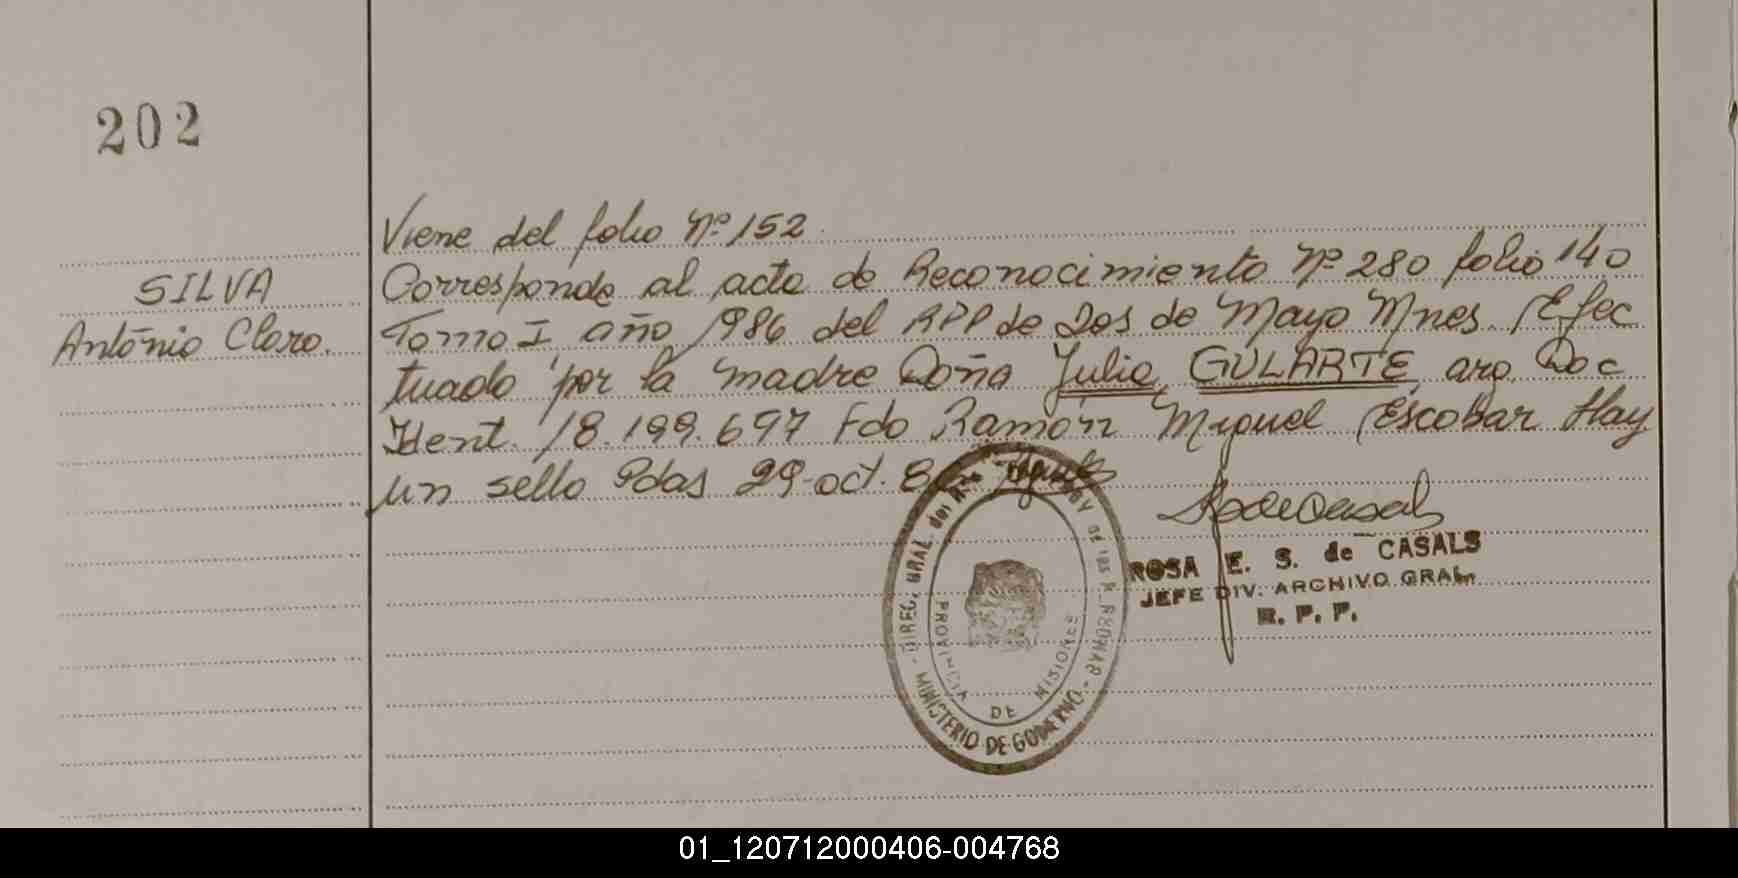 202
Viene del folio Nº 152
SILVA
Antonio Claro.
Corresponde al acta de Reconocimiento Nº 280 folio 140
Tomo I año 1986 del RPP de Dos de Mayo Mnes. Efec
tuado por la madre Doña Julia GULARTE arg. Doc
Ident. 18.199.697 Fdo Ramón Miguel Escobar Hay
un sello Pdas 29-oct. 86
ROSA E. S. de CASALS
JEFE DIV. ARCHIVO GRAL.
R. P. P.
DIREC. GRAL. del
PROVINCIA DE MISIONES
MINISTERIO DE GOBIERNO
01_120712000406-004768